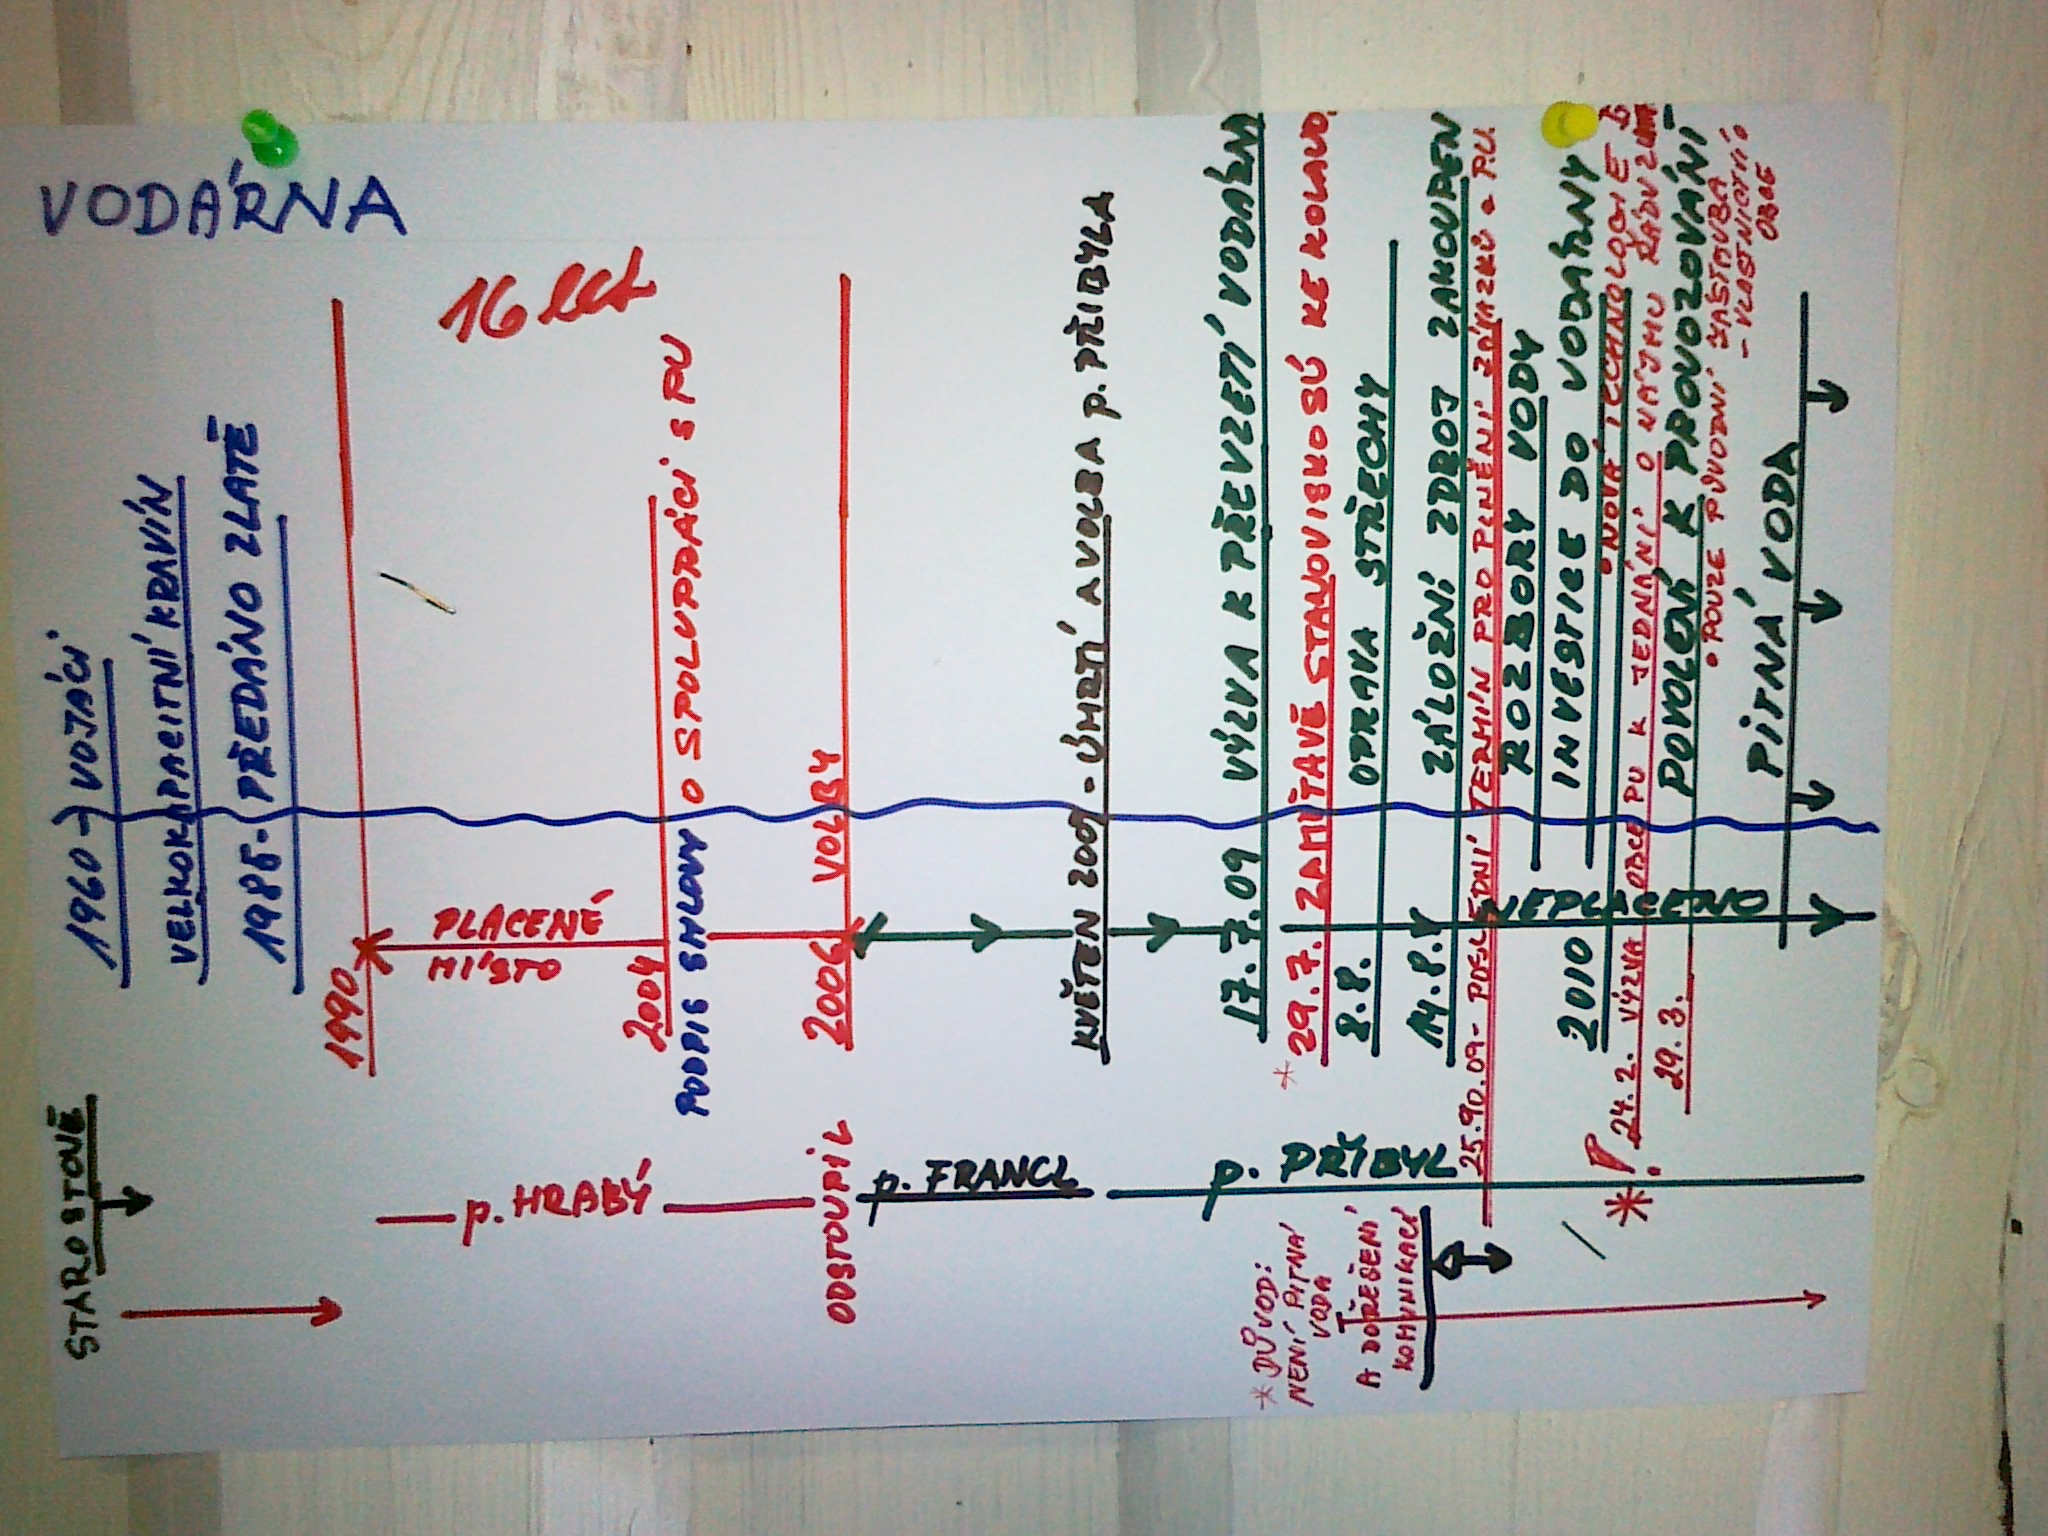 VODÁRNA
STAROSTOVÉ
1960 → VOJÁCI
VELKOKAPACITNÍ KRAVÍN
1985. PŘEDÁNO ZLATÉ
1990
16 let
PLACENÉ
MÍSTO
p. HRABÝ
2004
PODPIS SMLOUVY O SPOLUPRÁCI S PÚ
2006 VOLBY
ODSTOUPIL
p. FRANCL
KVĚTEN 2009 - ÚMRTÍ A VOLBA p. PŘIBYLA
17.7.09 VÝZVA K PŘEVZETÍ VODÁRNY
* 29.7. ZAMÍTAVÉ STANOVISKO SÚ KE KOLAUD.
8.8. OPRAVA STŘECHY
14.8. ZÁLOŽNÍ ZDROJ ZAKOUPEN
p. PŘIBYL
25.10.09 - POSLEDNÍ TERMÍN PRO PLNĚNÍ ZÁVAZKŮ - P.Ú.
ROZBORY VODY
2010 INVESTICE DO VODÁRNY
• NOVÁ TECHNOLOGIE
NEPLACENO
* ! 24.2. VÝZVA OBCE PÚ K JEDNÁNÍ O NÁJMU
29.3. POVOLENÍ K PROVOZOVÁNÍ
• POUZE PŮVODNÍ ZÁSTAVBA
- VLASTNICTVÍ
OBCE
PITNÁ VODA
* DŮVOD:
NENÍ PITNÁ
VODA
A DOŘEŠENÍ
KOMUNIKACÍ